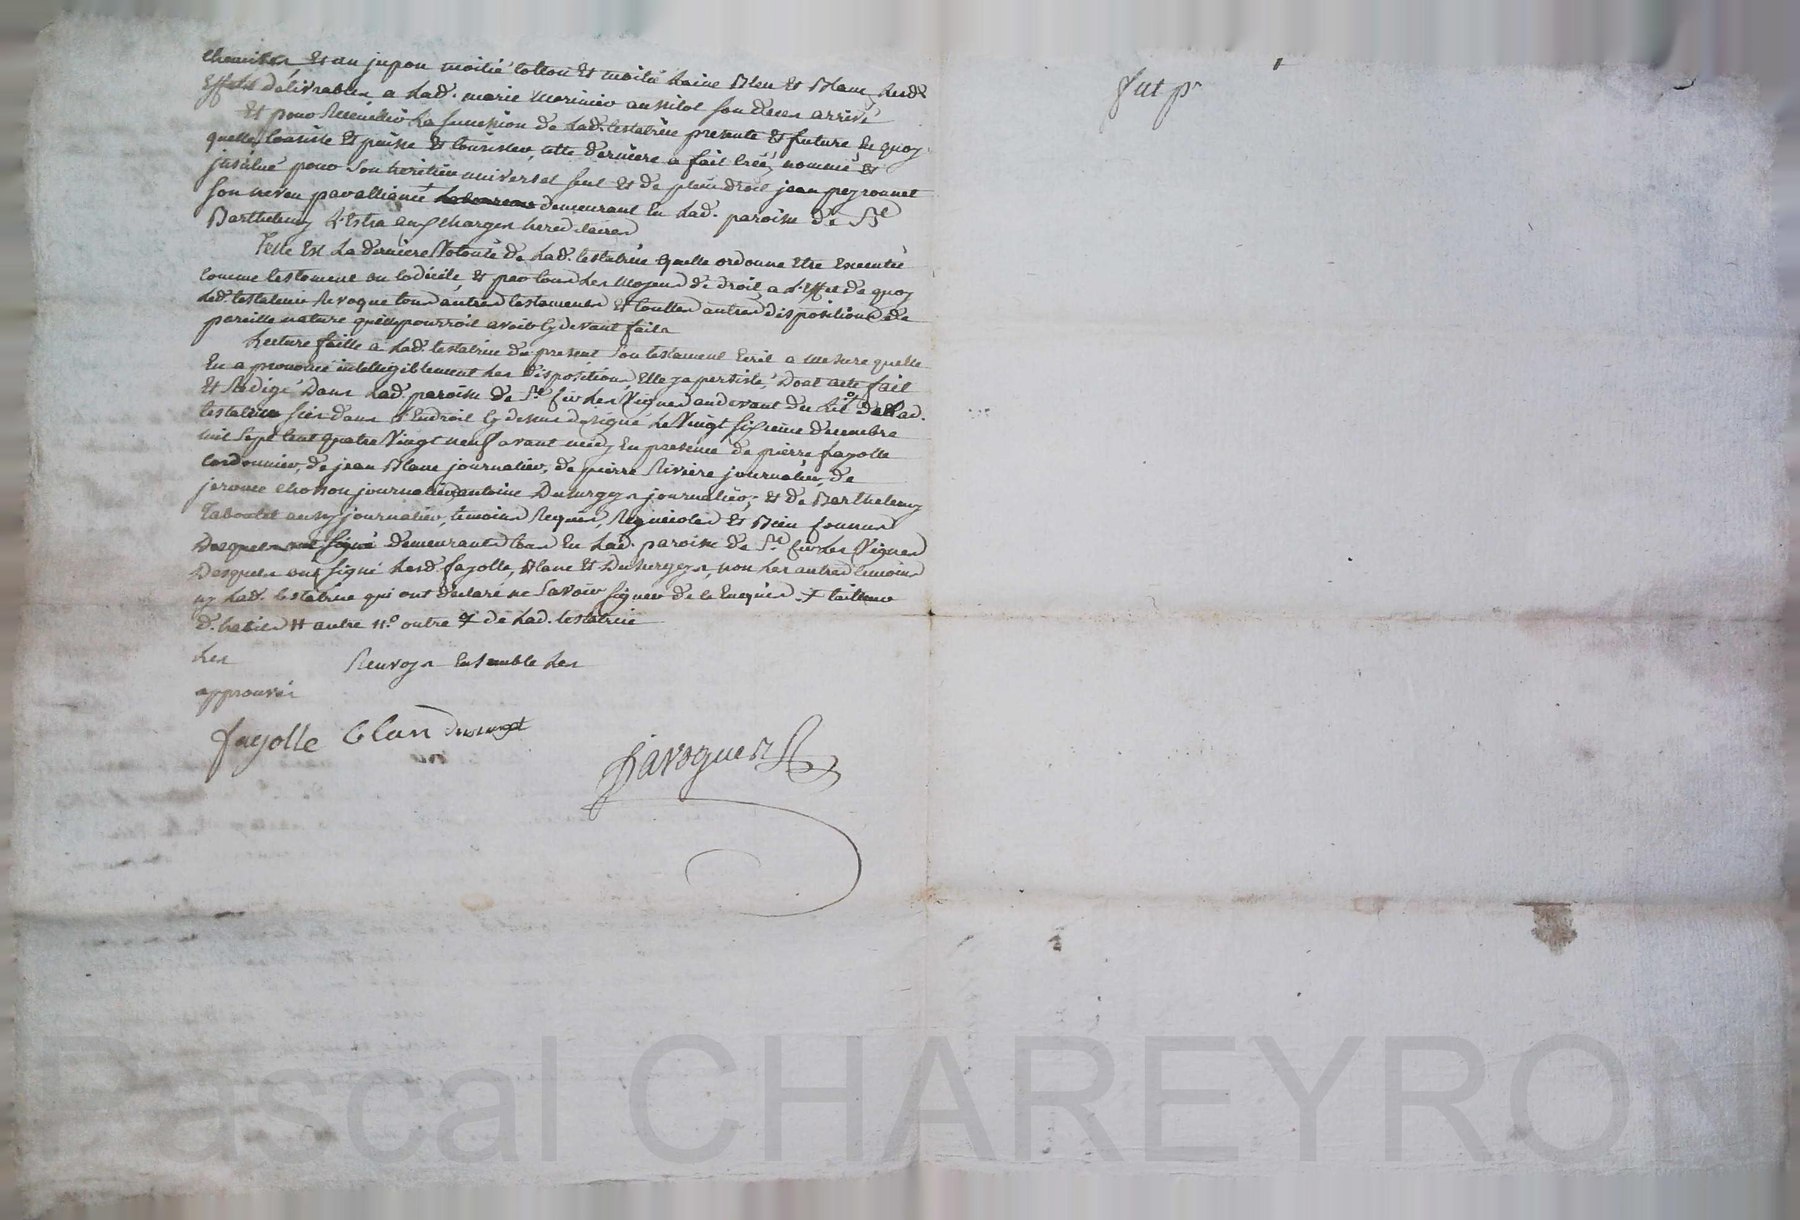 chemises Et un jupon moitié cotton Et moitié Laine Bleu Et Blanc, Lesd.
Effets délivrables a Lad. marie morinier aussitot son deces arrivé
Et pour Recueillir La succession de Lad. testatrice presente & future En quoy
quelle Consiste Et puisse & Consister, cette derniere a fait créé, nommé &
institué pour son heritier universel seul Et de plein droit jean peyronnet
son neveu par alliance demeurant En Lad. paroisse de St
Barthelemy Lestra aux charges hereditaires
Telle Est La derniere Volonté de Lad. testatrice quelle ordonne Etre Executée
comme testament ou codicile & par tous Les Moyens de droit, a L'Effet de quoy
Lad. testateur Revoque tous autres testaments Et touttes autres dispositions de
pareille nature quelle pourroit avoir cy devant faits
Lecture faitte a Lad. testatrice du present son testament Ecrit a mesure quelle
En a prononcé intelligiblement Les dispositions Elle y a persisté, Dont acte fait
Et Redigé Dans Lad. paroisse de St Cir Les Vignes audevant du Lit de Lad.
testatrice sis dans L'Endroit cy dessus designé Le Vingt sixieme decembre
mil sept cent quatre Vingt neuf avant midy En presence de pierre fayolle
Cordonnier, de jean Blanc journalier, de pierre Riviere journalier, de
jerome chosson journalier antoine Dusurgey journalier, & de Barthelemy
aussy journalier, temoins Requis, Et Bien connus
Desquels ont signé demeurants tous En Lad. paroisse de St Cir Les Vignes
Desquels ont signé Lesd. fayolle, Blanc Et Dusurgey, non Les autres temoins
ny Lad. testatrice qui ont declaré ne Savoir signer de ce Enquis + tailleur
d'habits # autre n.o outre + de Lad. testatrice
Les Renvoys Ensemble Les
approuvés
fayolle Blan dusurget
Javogues
fut pr
Pascal CHAREYRON